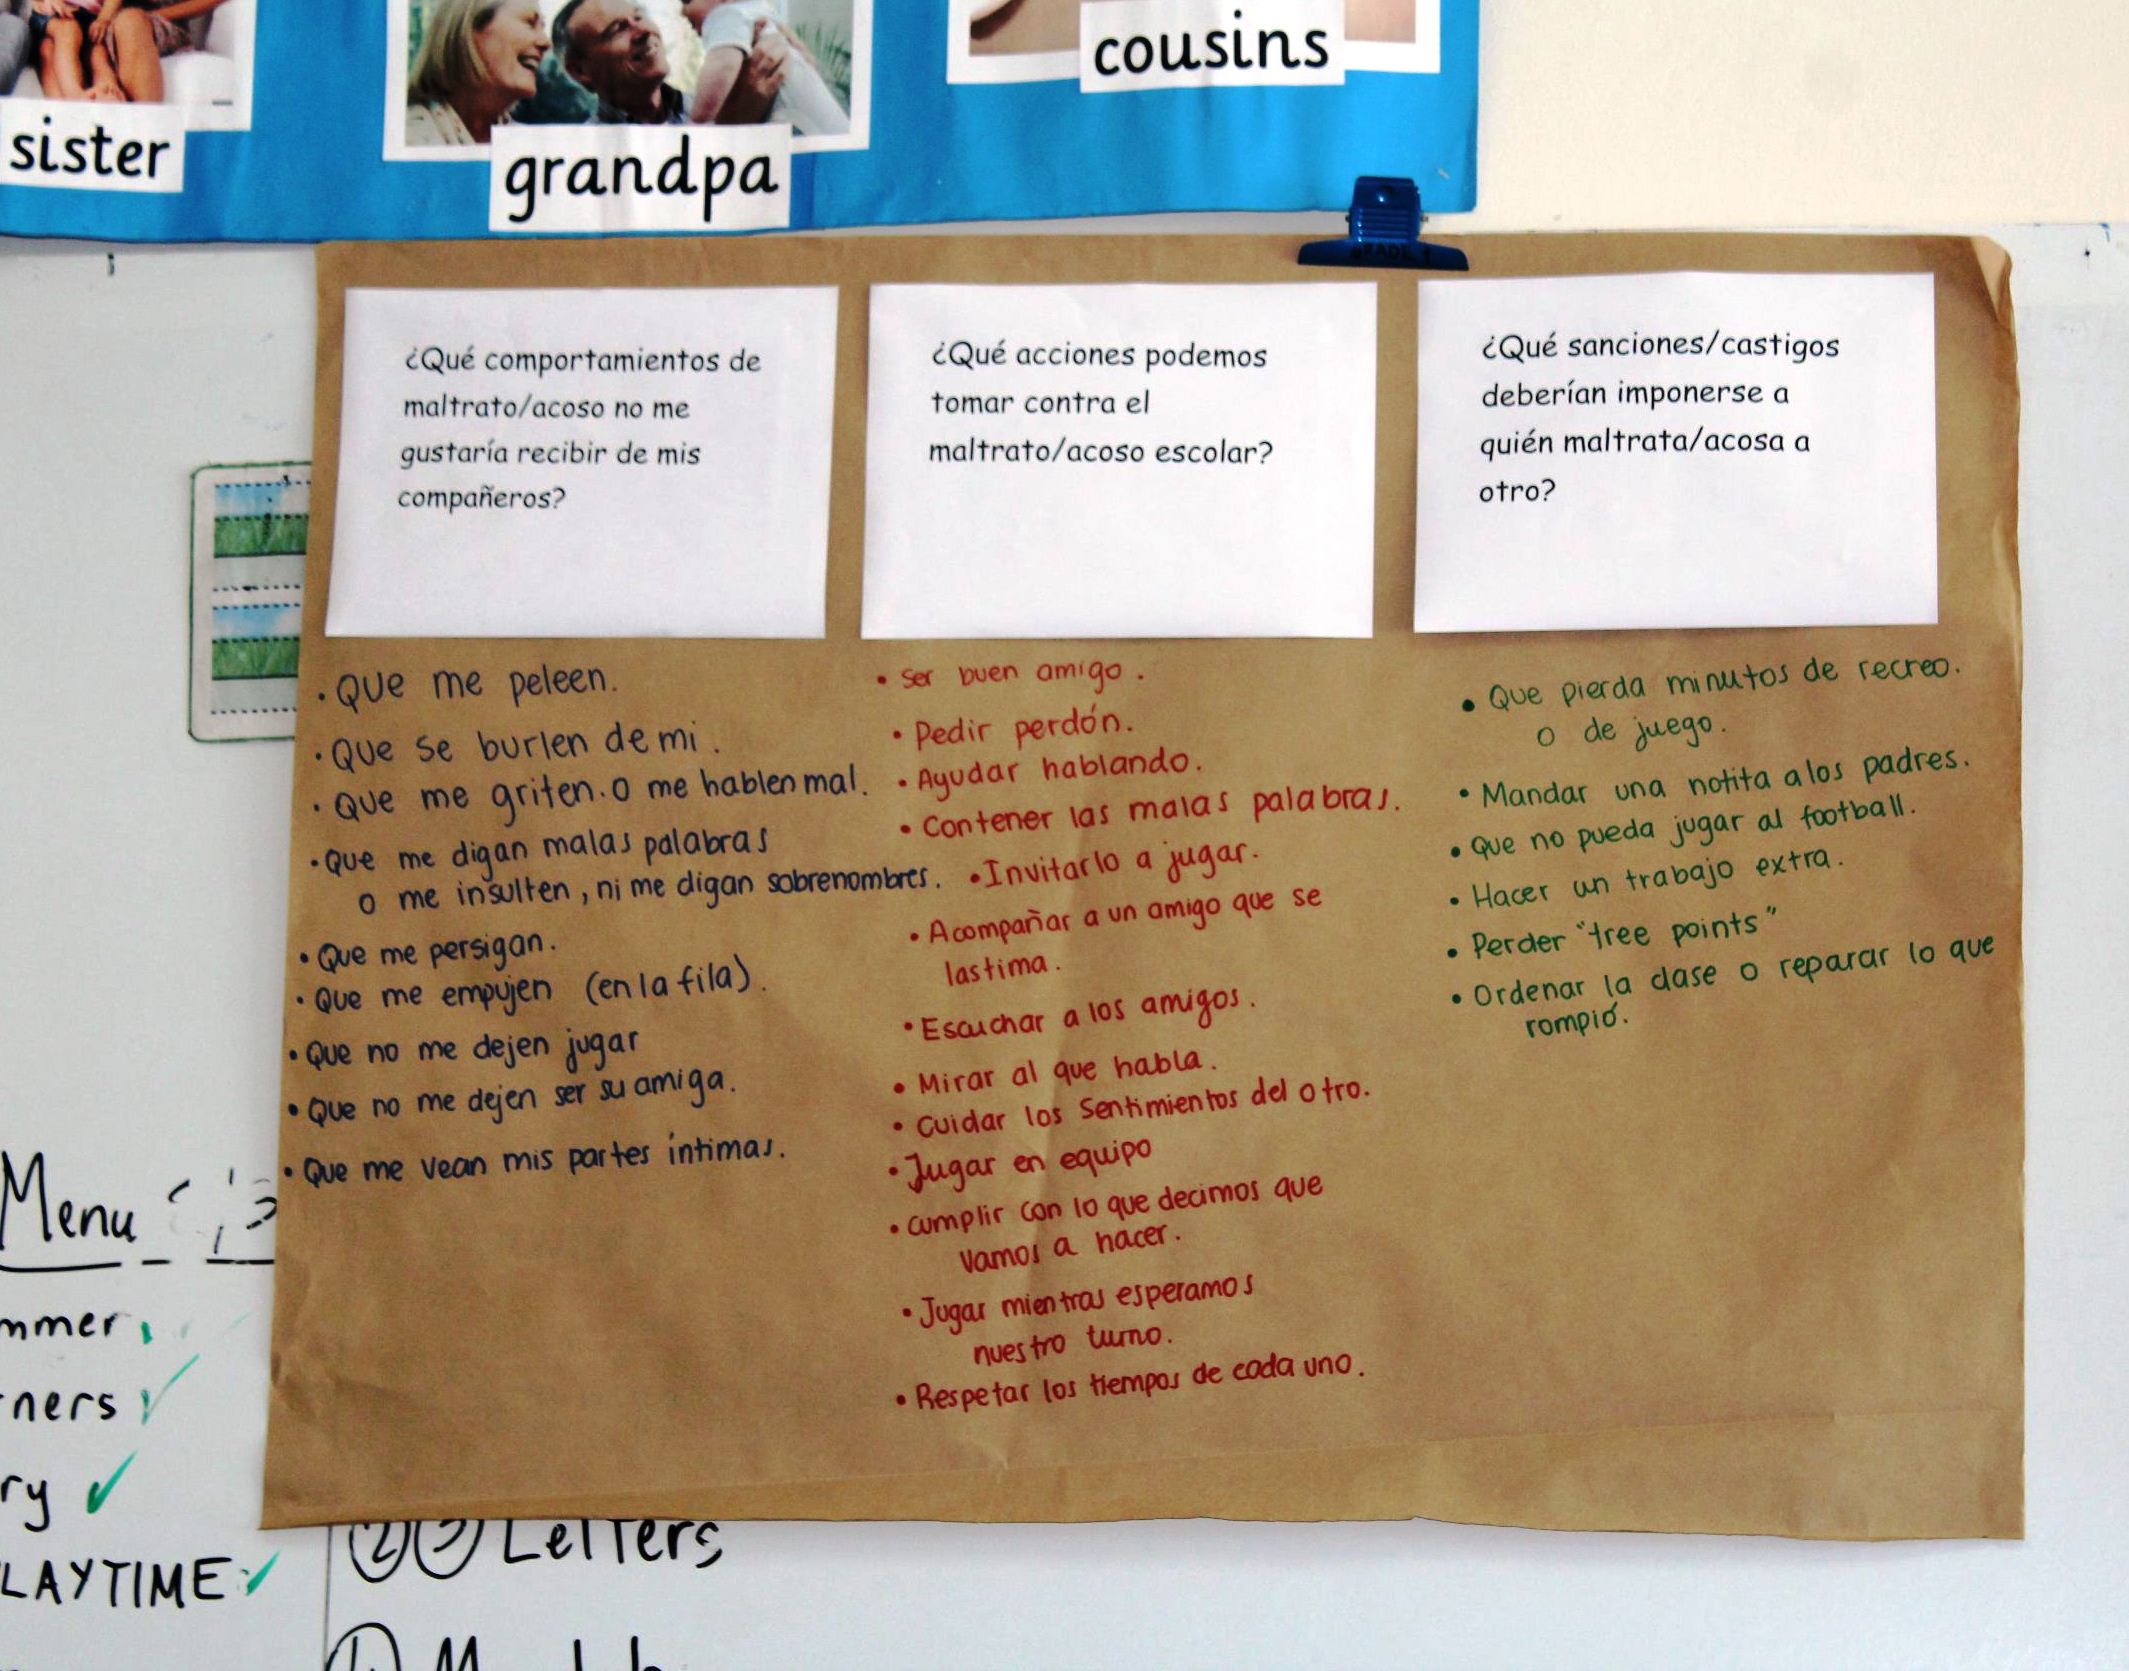 sister
grandpa
cousins
GRADE 1
¿Qué comportamientos de
maltrato/acoso no me
gustaría recibir de mis
compañeros?
• Que me peleen.
• Que se burlen de mi.
• Que me griten. o me hablen mal.
• Que me digan malas palabras
o me insulten, ni me digan sobrenombres.
• Que me persigan.
• Que me empujen (en la fila).
• Que no me dejen jugar
• Que no me dejen ser su amiga.
• Que me vean mis partes íntimas.
¿Qué acciones podemos
tomar contra el
maltrato/acoso escolar?
• Ser buen amigo.
• Pedir perdón.
• Ayudar hablando.
• Contener las malas palabras.
• Invitarlo a jugar.
• Acompañar a un amigo que se
lastima.
• Escuchar a los amigos.
• Mirar al que habla.
• Cuidar los Sentimientos del otro.
• Jugar en equipo
• Cumplir con lo que decimos que
vamos a hacer.
• Jugar mientras esperamos
nuestro turno.
• Respetar los tiempos de cada uno.
¿Qué sanciones/castigos
deberían imponerse a
quién maltrata/acosa a
otro?
• Que pierda minutos de recreo.
o de juego.
• Mandar una notita a los padres.
• Que no pueda jugar al football.
• Hacer un trabajo extra.
• Perder "tree points"
• Ordenar la clase o reparar lo que
rompió.
Menu
mmer
rners
ry ✓
LAYTIME ✓
② ③ Letters